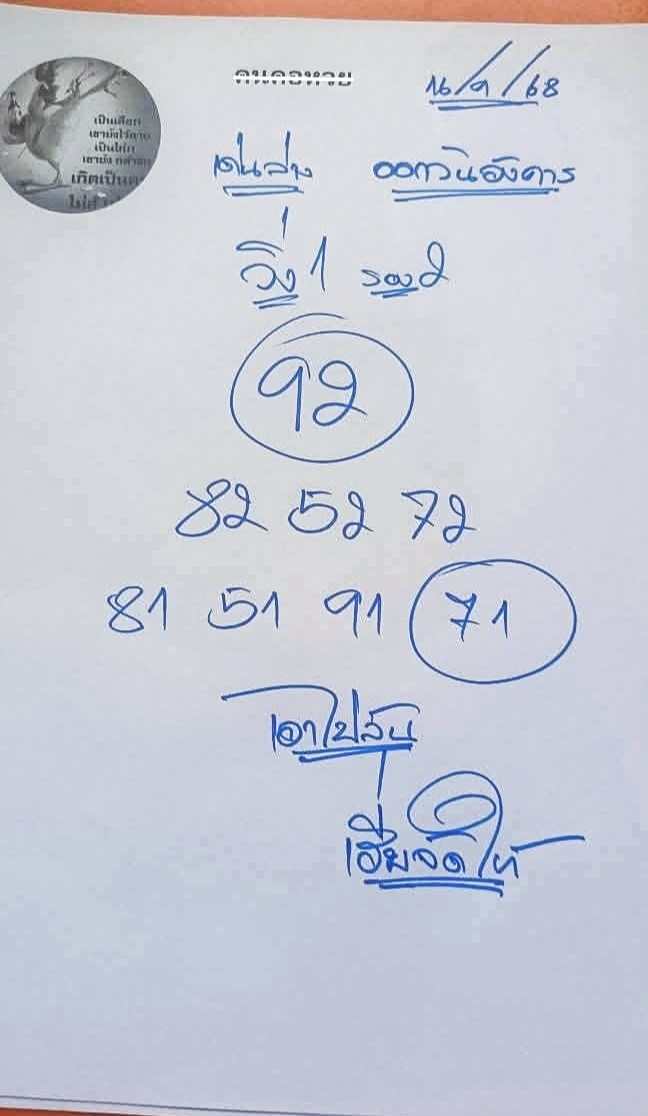 เป็นเสือก
เขายังไว้ลาย
เป็นไก่ก
เกิดเป็นค
คนคอหวย
16/9/68
เด่นล่าง ออกวันอังคาร
วิ่ง 1 รอง 2
92
82 52 72
81 51 91 71
เอาไปลุ้น
เฮียจัดให้